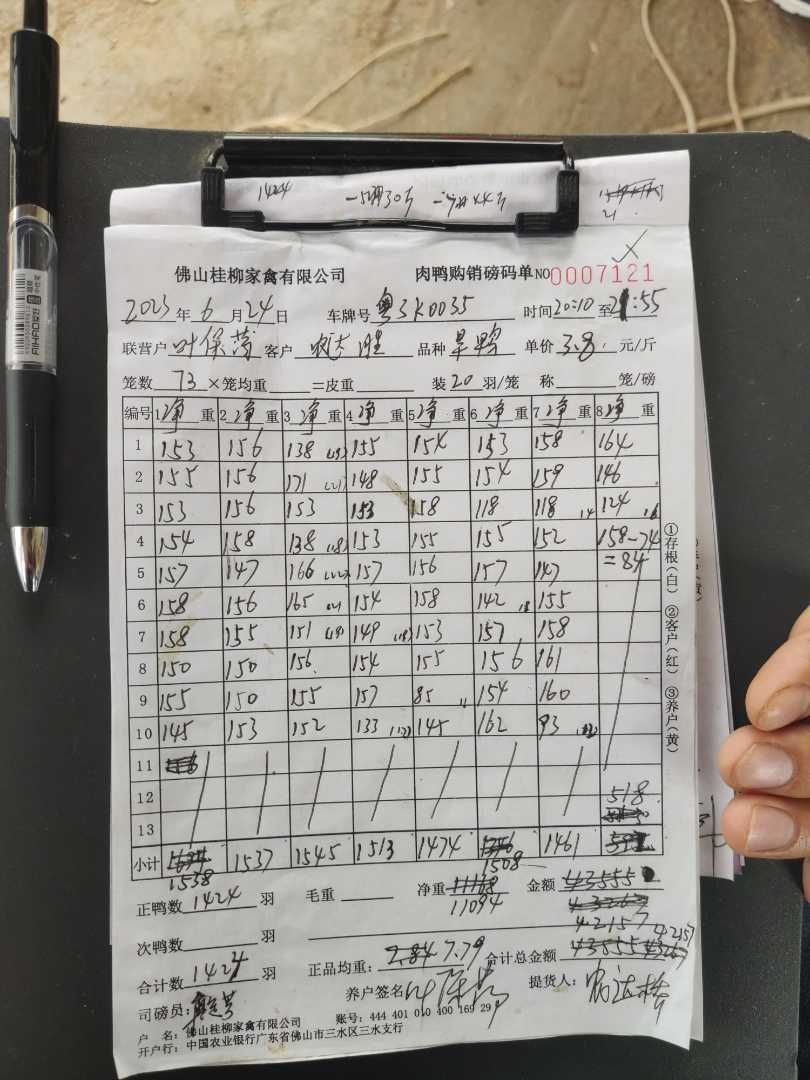 1424
佛山桂柳家禽有限公司 肉鸭购销磅码单 NO 0007121
2023 年 6 月 24 日 车牌号 粤 3K0035 时间 20:10 至 21:55
联营户 叶保 客户 品种 旱鸭 单价 3.8 元/斤
笼数 73 ×笼均重 =皮重 装 20 羽/笼 称 笼/磅
编号 1 净 重 2 净 重 3 净 重 4 净 重 5 净 重 6 净 重 7 净 重 8 净 重
1 153 156 138 155 154 153 158 164
2 155 156 171 148 155 154 159 146
3 153 156 153 153 158 118 118 14 124 16
4 154 158 138 (18) 153 155 155 152 158-74
5 157 147 166 157 156 157 147 =84
6 158 156 165 154 158 142 18 155
7 158 155 151 (19) 149 (18) 153 157 158
8 150 150 156 154 155 156 161
9 155 150 155 157 85 11 154 160
10 145 153 152 133 145 162 93
11
12 518
13
小计 1538 1537 1545 1513 1474 1508 1461
正鸭数 1424 羽 毛重 净重 11094 金额 43555
43263
42157
次鸭数 羽 42157
合计数 1424 羽 正品均重: 2.84 7.79 合计总金额 43555 43263
司磅员: 养户签名 叶保 提货人:
户 名: 佛山桂柳家禽有限公司 账号: 444 401 010 400 169 29
开户行: 中国农业银行广东省佛山市三水区三水支行
①存根(白) ②客户(红) ③养户(黄)